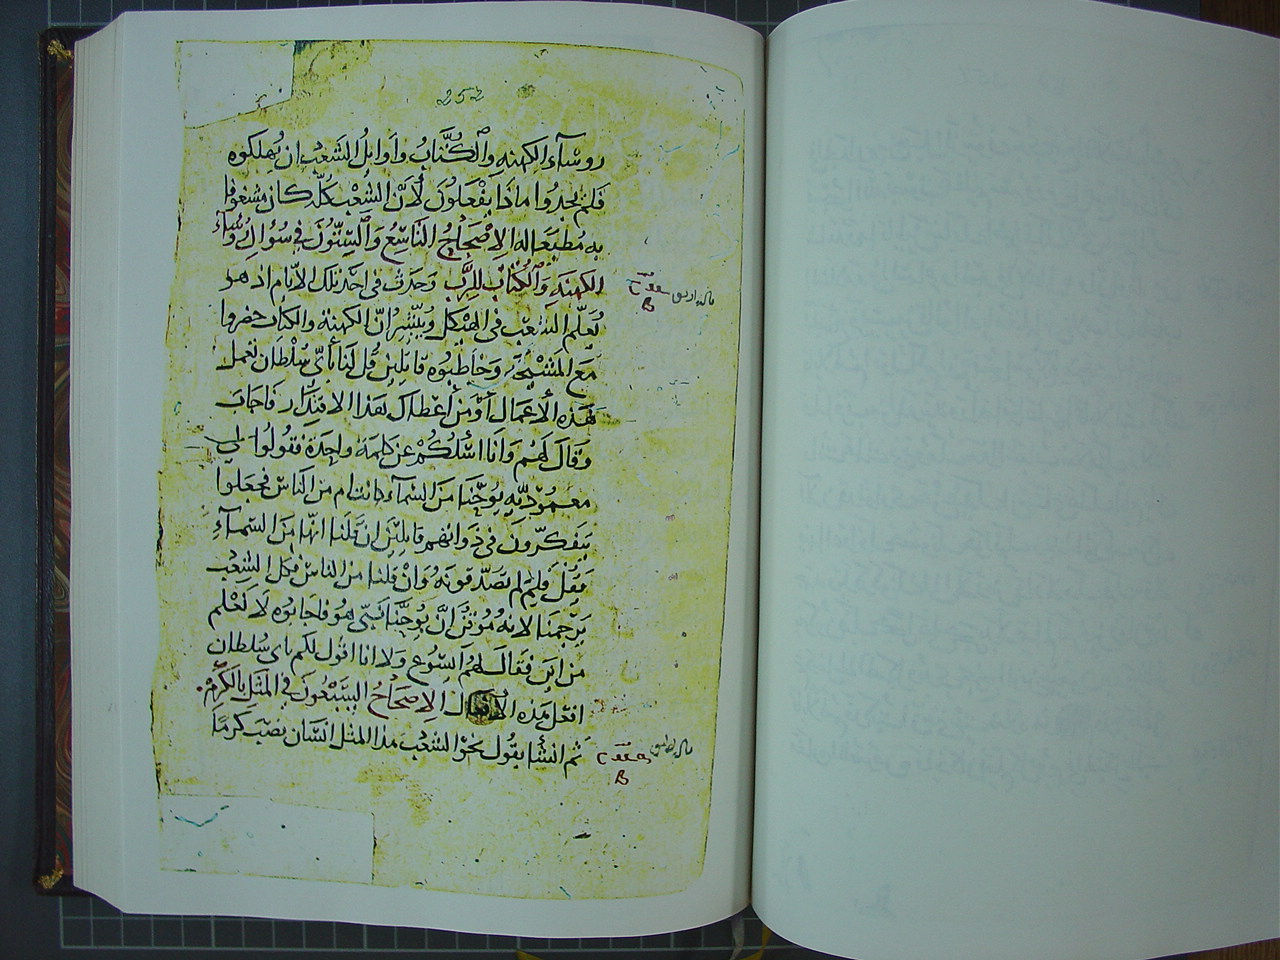 252
روساء الكهنه والكُتَّابُ واوايلُ الشعب ان يهلكوه
فلم يجدوا ماذا يفعلون لأن الشعب كلّه كان مشغوفا
به مُطيعًا له الإصحاحُ التاسع والستّون في سؤال روساء
الكهنه والكُتاب للرَّب وحدث في احد تلك الايام اذ هو
يُعلّم الشعب في الهيكل ويبشر انّ الكهنة والكتاب حضروا
مع المشيخة وخاطبوه قايلين قُل لنا بأىّ سُلطان تعمل
هذه الأعمال أو من أعطاك هذا الاقتدار فاجاب
وقال لهُم وانا اسْلكُم عن كلمة واحدة فقولُوا لي
معموديّه يوحَنّا من السّمآء كانت ام من الناس فجعلوا
يتفكرون في ذواتهم قايلين ان قلنا انّها من السّمآء
فيقل فلم لم تصدّقونه وان قلنا من الناس فكل الشعب
يرجمنا لانه مُوقن انّ يُوحَنّا نبىّ هو فاجابوه لا نعلم
من اين فقال لهم اسّوع ولا انا اقول لكم باى سُلطان
افعل هذه الافعال الإصحاحُ السَّبعُون في المثل بالكَرْم
ثم انشأ يقول نحو الشعب هذا المثل انسان نصب كرمًا